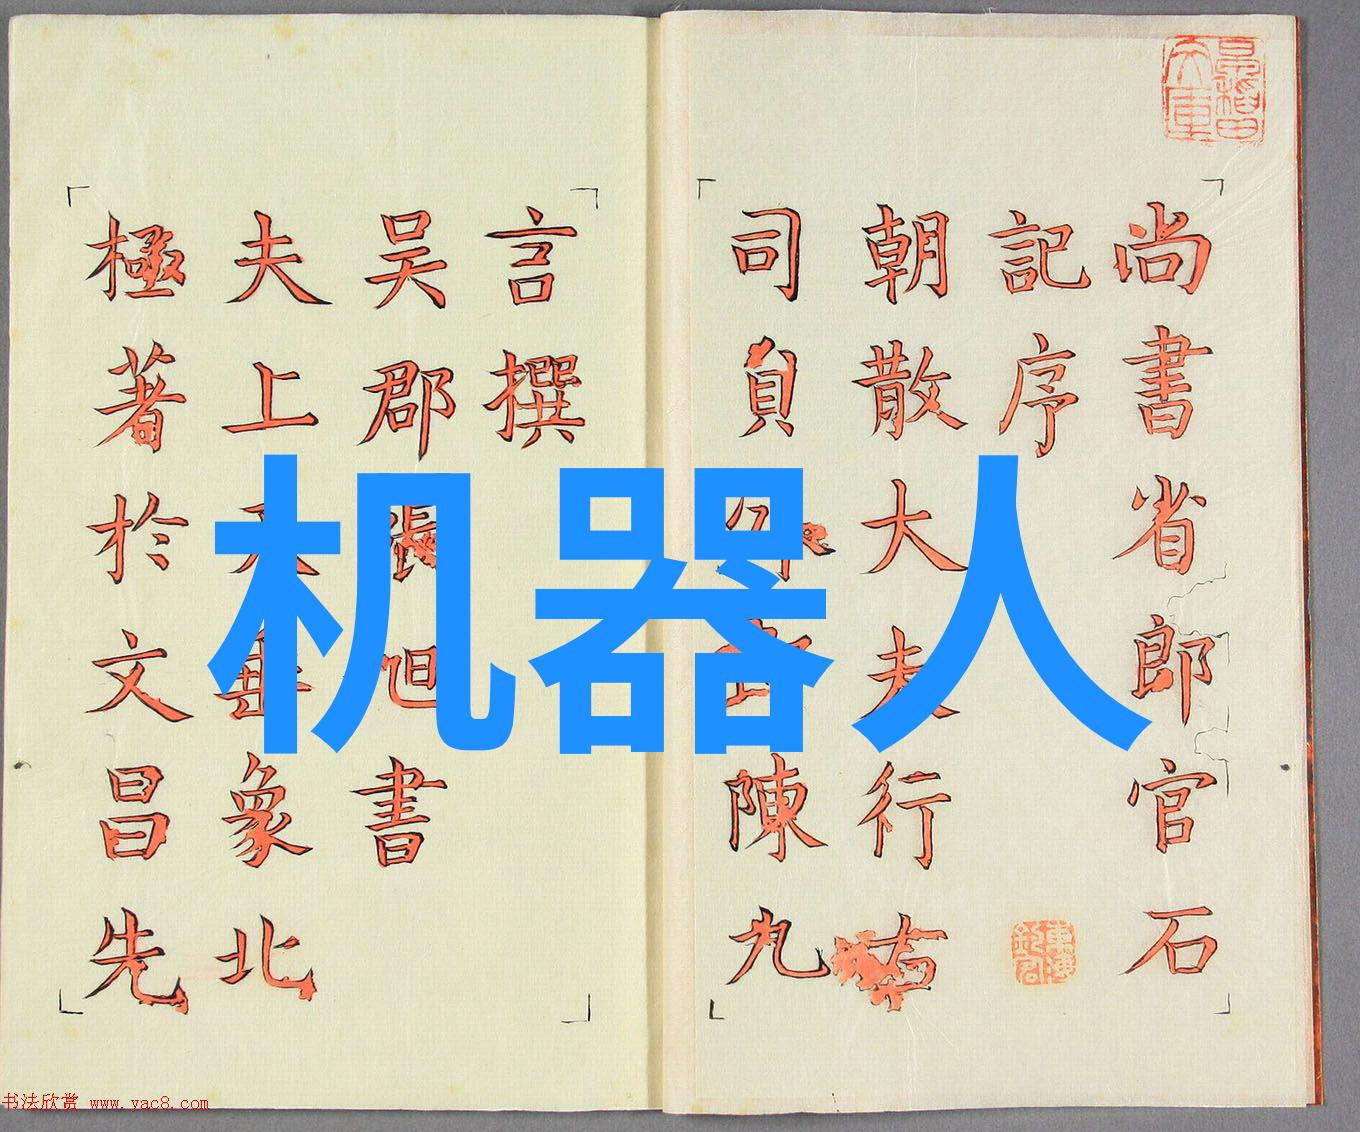 尚書省郎官石
記序
朝散大夫行右
司員外郎陳九
言撰
吴郡張旭書
夫上天垂象北
極著於文昌先
机器人
书法欣赏 www.yac8.com